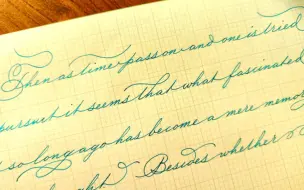 Then as time passes on and one is tried
pursuit it seems that what fascinated
so long ago has become a mere memo
Besides whether